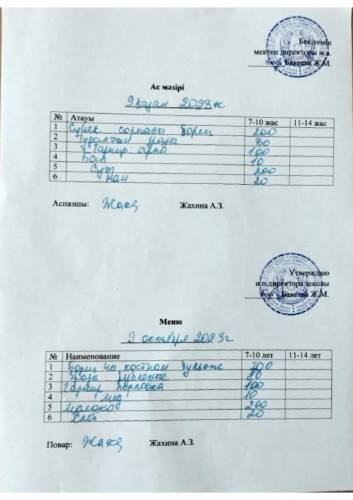 Бекітемін
мектеп директоры м.а.
Бакеева Ж.М.
Ас мәзірі
9 қазан 2023ж
№ Атауы 7-10 жас 11-14 жас
1 Сүйек сорпасы борщ 200
2 Туралған 80
3 Гарнир арпа 100
4 Бал 10
5 Сүт 200
6 Нан 20
Аспазшы: Жахина А.З.
Утверждаю
и.о.директора школы
Бакеева Ж.М.
Меню
9 октября 2023г
№ Наименование 7-10 лет 11-14 лет
1 Борщ на костном бульоне 200
2 80
3 Гарнир перловка 100
4 мед 10
5 молоко 200
6 Хлеб 20
Повар: Жахина А.З.